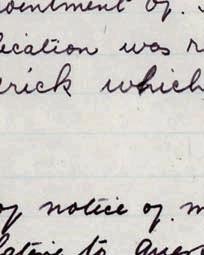 ointment of.
lication was r
erick which
of notice of m
lating to quer